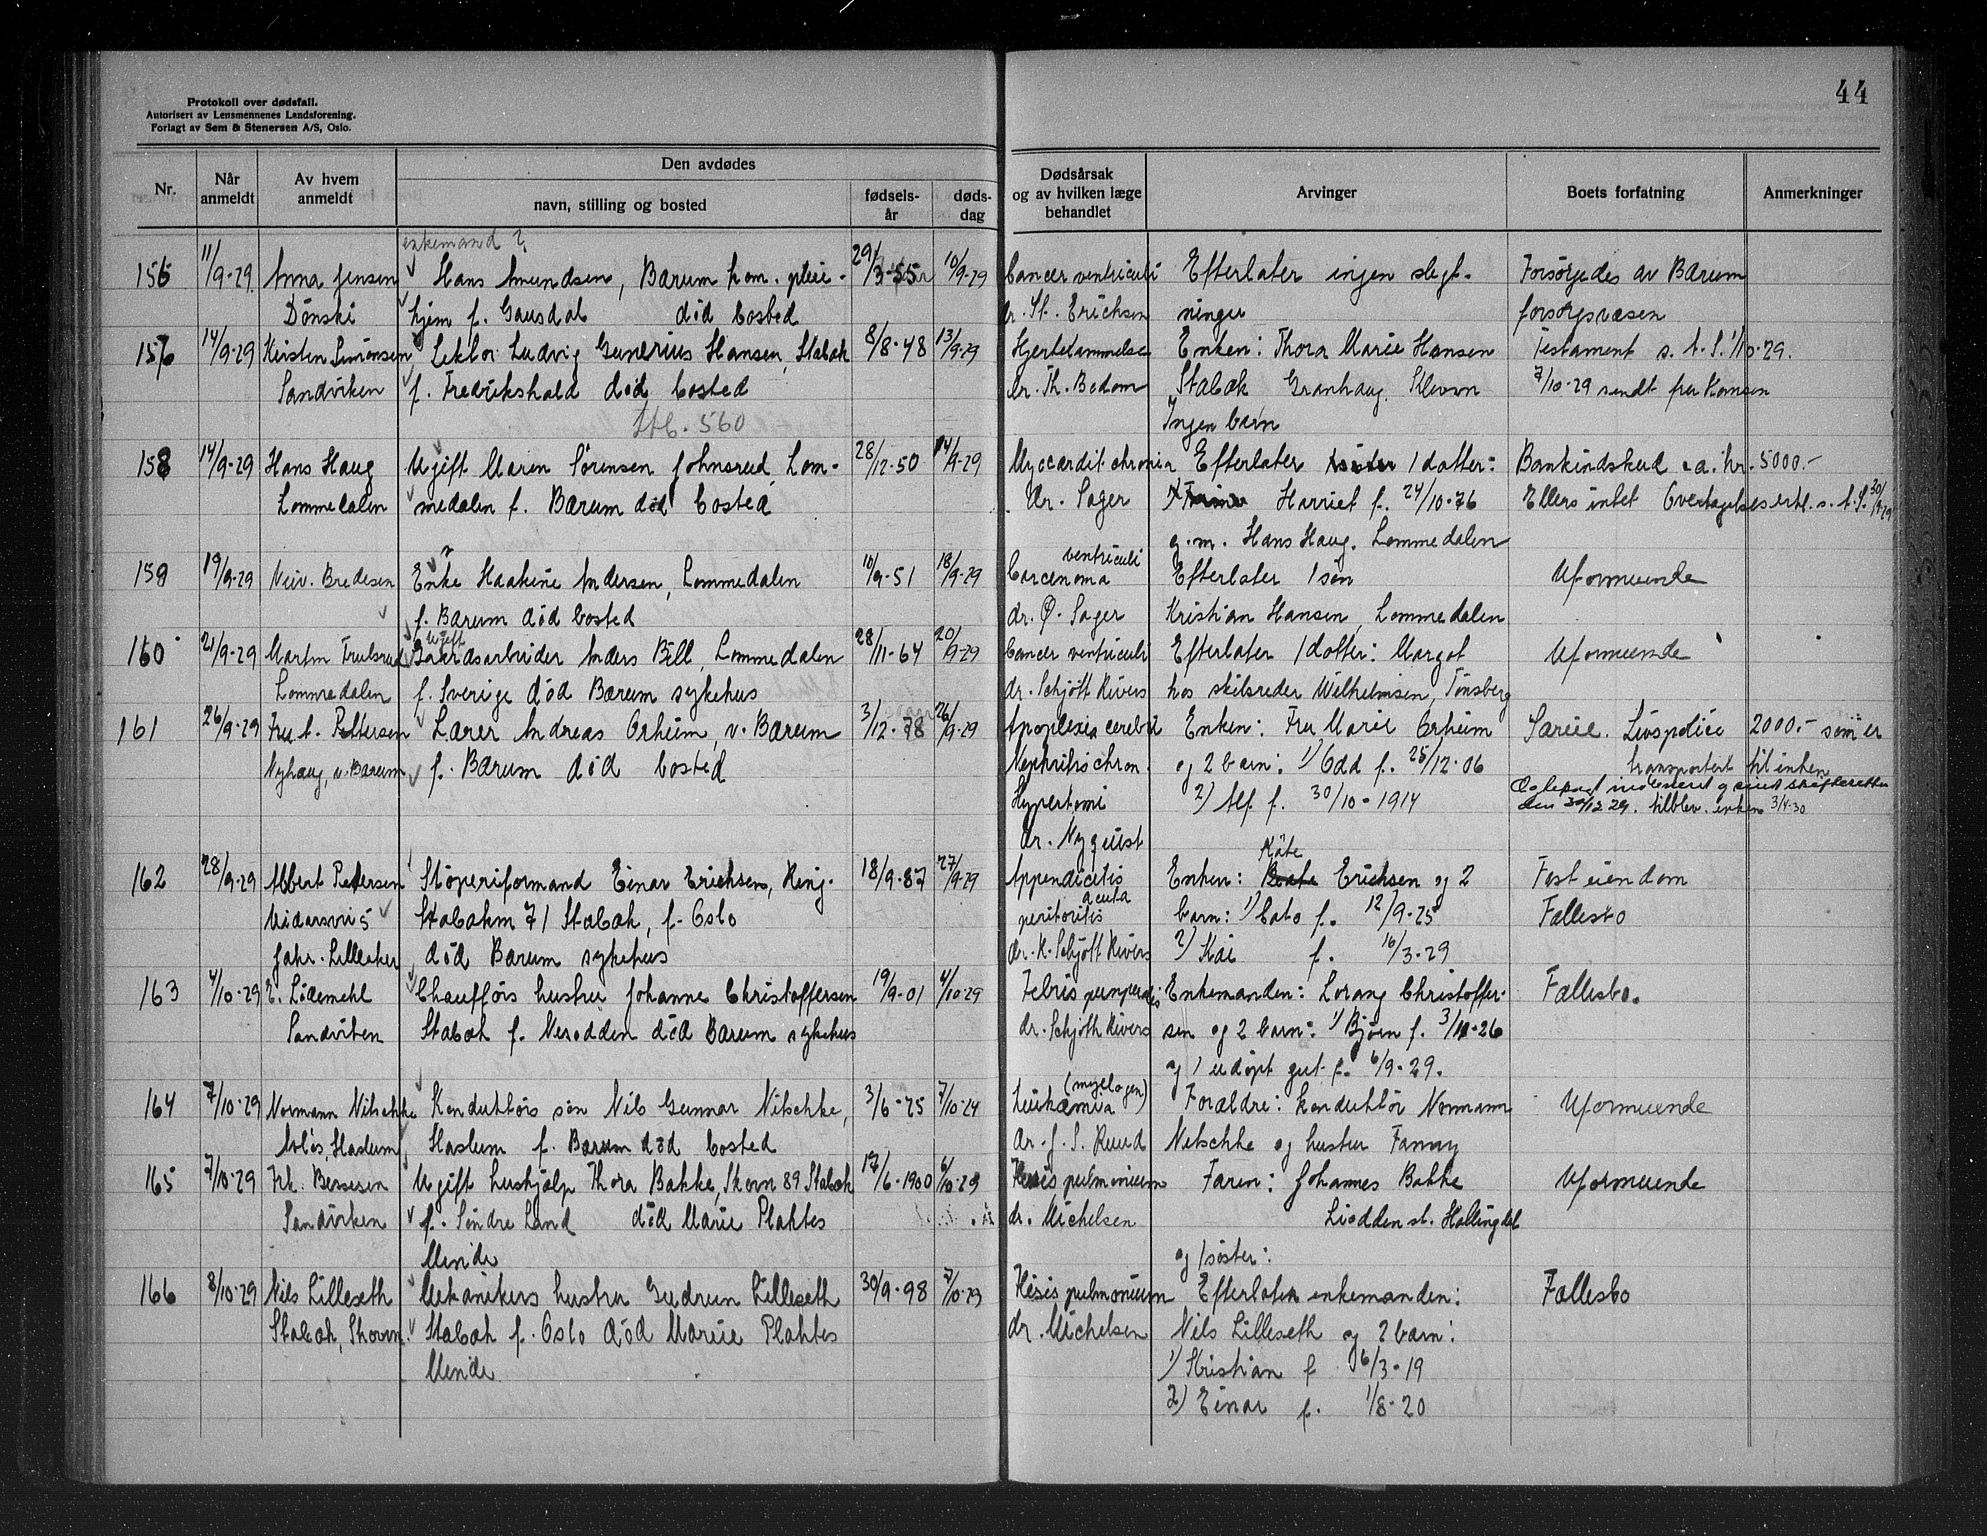 44
Protokoll over dødsfall.
Autorisert av Lensmennenes Landsforening.
Forlagt av Sem & Stenersen A/S, Oslo.
Nr.
Når anmeldt
Av hvem anmeldt
Den avdødes
navn, stilling og bosted
fødsels-år
døds-dag
Dødsårsak og av hvilken læge behandlet
Arvinger
Boets forfatning
Anmerkninger
enkemand ?
156 11/9-29. Anna Jensen Hans Amundsen, Bærum kom. pleie- 29/3-55 10/9-29 Cancer ventriculi Efterlater ingen slegt- Forsørgedes av Bærum
Dønski hjem f. Gausdal død bosted dr. St. Erichsen ninger forsorgsvæsen
157 14/9-29 Kirsten Simonsen Lektor Ludvig Gunerius Hansen, Stabæk 8/8-48 13/9-29 Hjertelammelse Enken: Thora Marie Hansen Testament s. t. S. 1/10-29.
Sandviken f. Fredrikshald død bosted dr. Th. Bodom Stabæk Granhaug, 7/10-29 sendt fru
Stb. 560 Ingen barn
158 14/9-29 Hans Haug Ugift Maren Sørensen Johnsrud, Lom- 28/12-50 14/9-29 Myocardit chronica Efterlater 1 datter: Bankindskud ca. kr. 5000.-
Lommedalen medalen f. Bærum død bosted dr. Sager Harriet f. 24/10-76 Ellers intet Overtagelseserkl. s. t. S. 30/9-29
g. m. Hans Haug. Lommedalen
159 19/9-29 Bredesen Enke Haakine Andersen, Lommedalen 10/9-51 18/9-29 Carcenoma ventriculi Efterlater 1 søn Uformuende
f. Bærum død bosted dr. Ø. Sager Kristian Hansen, Lommedalen
ugift
160 21/9-29 Martin Trulsrud Gaardsarbeider Anders Bill, Lommedalen 28/11-64 20/9-29 Cancer ventriculi Efterlater 1 datter: Margot Uformuende
Lommedalen f. Sverige død Bærum sykehus dr. Schjøtt Rivers hos skibsreder Wilhelmsen, Tønsberg
161 26/9-29 Fru A. Pettersen Lærer Andreas Orheim, v. Bærum 3/12-78 26/9-29 Apoplexia cerebri Enken: Fru Marie Orheim Særeie. Livspolice 2000.- som er
Nyhaug, v. Bærum f. Bærum død bosted Nephritis chron. og 2 barn: 1) Odd f. 25/12-06 transportert til enken
Hypertoni 2) Alf f. 30/10-1914 den 30/12 29. enken 3/4-30
dr. Nyquist
162 28/9-29 Albert Pedersen Støperiformand Einar Erichsen, Ring- 18/9-87 27/9-29 Appendicitis Enken: Käte Erichsen og 2 Fast eiendom
Stabækm 71 Stabæk, f. Oslo acuta peritonitis barn: 1) Cato f. 12/9-25 Fællesbo
Lilleaker død Bærum sykehus dr. K. Schjøtt Rivers 2) Kai f. 16/3-29
163 4/10-29 Sandviken Chaufførs hustru Johanne Christoffersen 19/9-01 4/10-29 Febris puerperalis Enkemanden: Lorang Christoffer- Fællesbo.
Stabæk f. Notodden død Bærum sykehus dr. Schjøtt Rivers sen og 2 barn: 1) Bjørn f. 3/11-26
og 1 udøpt gut f. 6/9-29.
164 7/10-29 Normann Nitschke Konduktørs søn Nils Gunnar Nitschke, 3/6-25 7/10-29 Leukæmia (myelogen) Forældre: Konduktør Normann Uformuende
Avløs, Haslum Haslum f. Bærum død bosted dr. J. S. Ruud Nitschke og hustru Fanny
165 7/10-29 Frk. Bersesen Ugift hushjælp Thora Bakke, Skovn 89 Stabæk 17/6-1900 6/10-29 Ftisis pulmonium Faren: Johannes Bakke Uformuende
Sandviken f. Søndre Land død Marie Plahtes Minde dr. Michelsen Liodden st. Hallingdal
og 1 søster:
166 8/10-29 Nils Lilleseth Mekanikers hustru Gudrun Lilleseth 30/9-98 7/10-29 Ftisis pulmonium Efterlater enkemanden: Fællesbo
Stabæk, Skovn. Stabæk f. Oslo død Marie Plahtes Minde dr. Michelsen Nils Lilleseth og 2 barn:
1) Kristian f 6/3-19
2) Einar f. 1/8-20